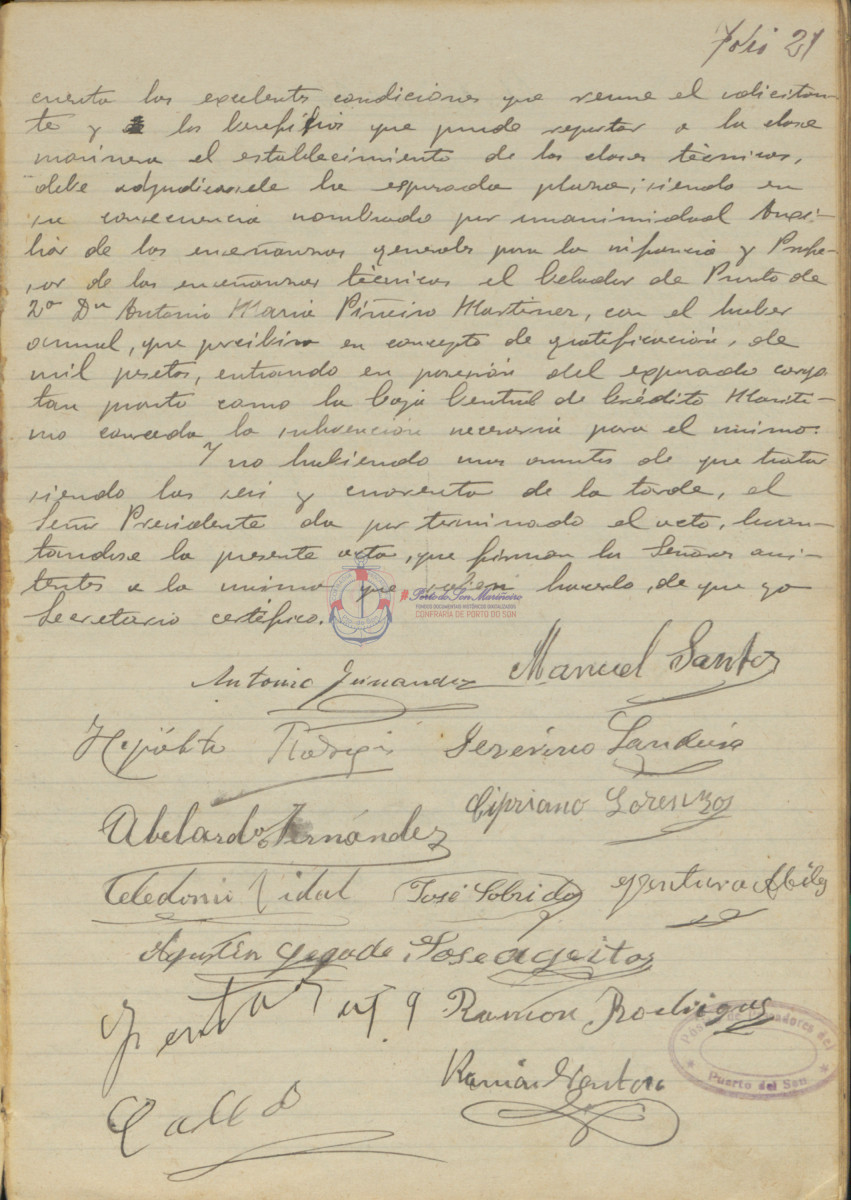 Folio 21
cuenta las excelentes condiciones que reune el solicitan-
te y a los beneficios que puede reportar a la clase
marinera el establecimiento de las clases técnicas,
debe adjudicarsele la expresada plaza, siendo en
su consecuencia nombrado por unanimidad Auxi-
liar de las enseñanzas generales para la infancia y Profe-
sor de las enseñanzas técnicas el Celador de Puerto de
2ª Dn Antonio Maria Piñeiro Martinez, con el haber
anual, que percibira en concepto de gratificación, de
mil pesetas, entrando en posesión del expresado cargo
tan pronto como la Caja Central de Crédito Mariti-
mo conceda la subvención necesaria para el mismo.
Y no habiendo mas asuntos de que tratar
siendo las seis y cuarenta de la tarde, el
Señor Presidente da por terminado el acto, levan-
tandose la presente acta, que firman los Señores asis-
tentes a la misma que saben hacerlo, de que yo
Secretario certifico.
Porto do Son Mariñeiro
FONDOS DOCUMENTAIS HISTÓRICOS DIXITALIZADOS
CONFRARÍA DE PORTO DO SON
Antonio Fernandez Manuel Santos
Hipólito Severino
Abelardo Fernández Cipriano Lorenzo
Celedonio Vidal José Sobrido Ventura
Agustín Jose ageitos
Ramon Rodriguez
Ramón Ventoso
Pósito de Pescadores del
Puerto del Son